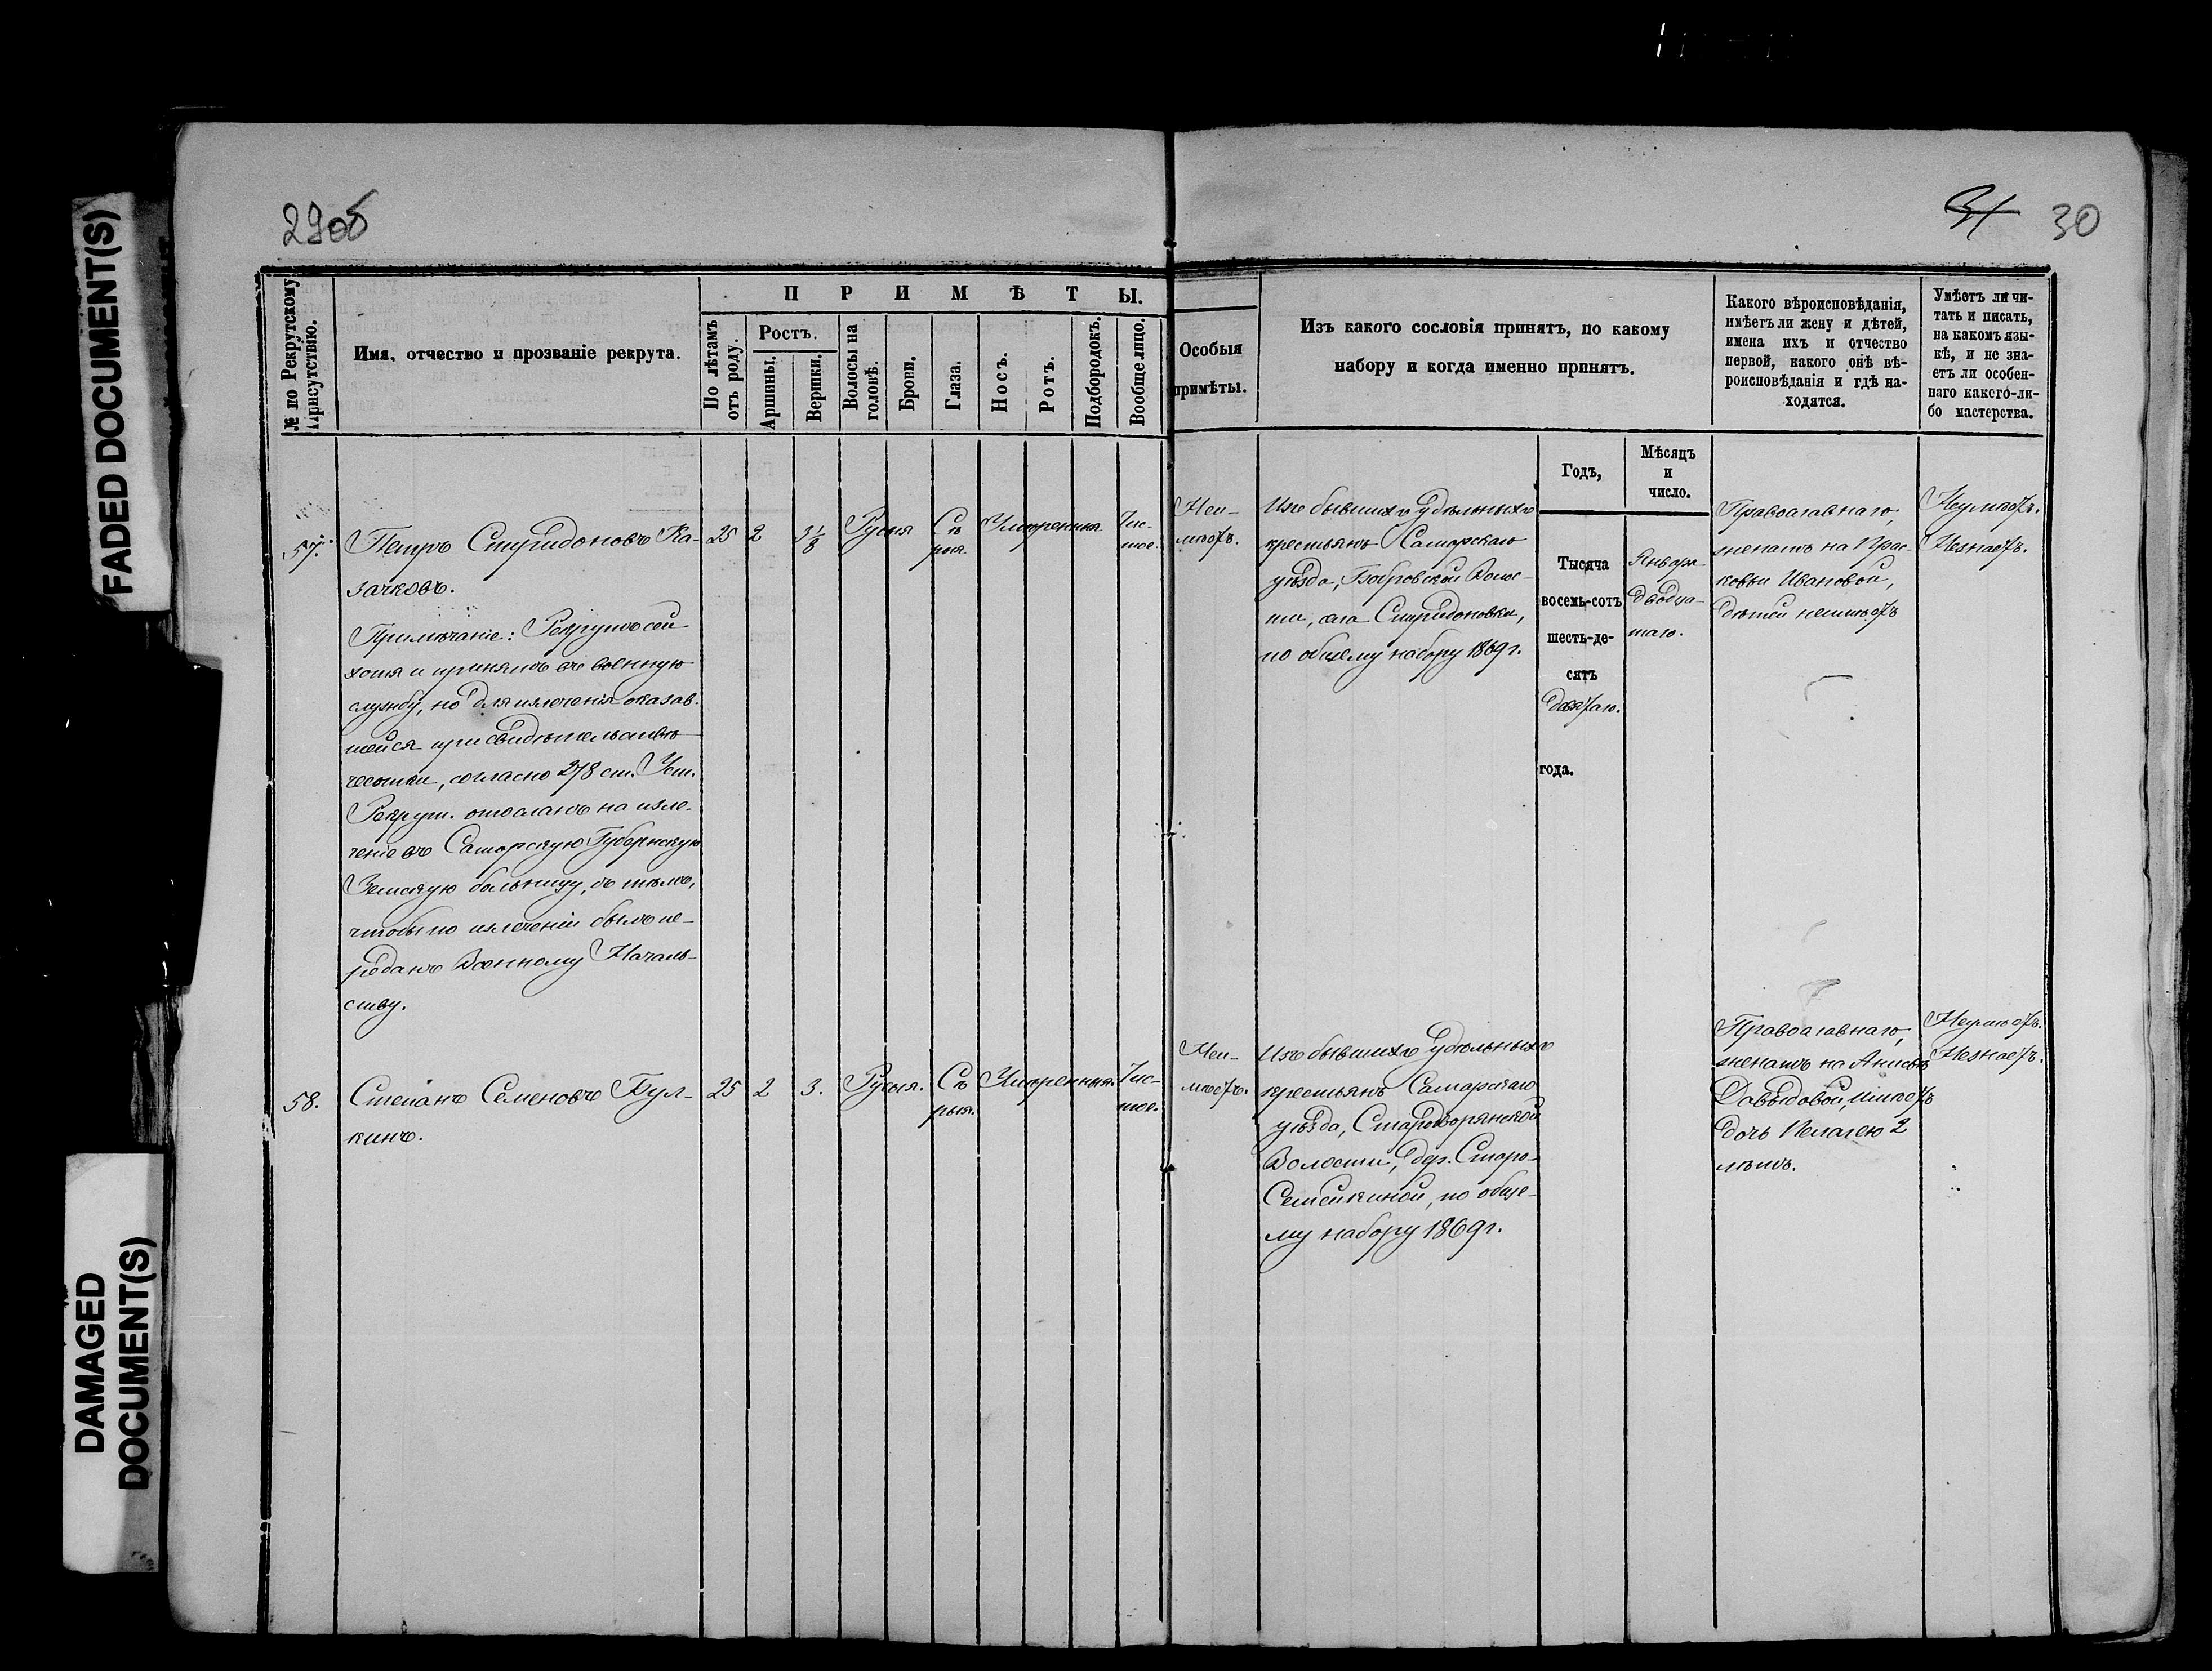 FADED DOCUMENT(S)
DAMAGED
DOCUMENT(S)
29об
31 30
№ по Рекрутскому Присутствію.
Имя, отчество и прозваніе рекрута.
ПРИМѢТЫ.
По лѣтамъ отъ роду.
Ростъ.
Аршины.
Вершки.
Волосы на головѣ.
Брови.
Глаза.
Носъ.
Ротъ.
Подбородокъ.
Вообще лицо.
Особыя
примѣты.
Изъ какого сословія принятъ, по какому
набору и когда именно принятъ.
Какого вѣроисповѣданія,
имѣетъ ли жену и дѣтей,
имена ихъ и отчество
первой, какого онѣ вѣ-
роисповѣданія и гдѣ на-
ходятся.
Умѣетъ ли чи-
тать и писать,
на какомъ язы-
кѣ, и не зна-
етъ ли особен-
наго какого-ли-
бо мастерства.
Годъ,
Мѣсяцъ
и
число.
57.
Петръ Спиридоновъ Ка-
зачковъ.
Примѣчаніе: Рекрутъ сей
хотя и принятъ въ военную
службу, но для излеченія оказав-
шейся при свидѣтельствѣ
чесотки, согласно 278 ст. Уст.
Рекрут. отосланъ на изле-
ченіе въ Самарскую Губернскую
Земскую больницу, съ тѣмъ,
чтобы по излеченіи былъ пе-
реданъ Военному Началь-
ству.
25
2
3 1/8
Русыя
Сѣ
рыя
Умѣренныя
Чис-
тое.
Неи-
мѣетъ.
Изъ бывшихъ удѣльныхъ
крестьянъ Самарскаго
уѣзда, Бобровской Волос-
ти, села Спиридоновки,
по общему набору 1869 г.
Тысяча
восемь-сотъ
шесть-де-
сятъ
девятаго.
года.
Января
двадца-
таго.
Православнаго,
женатъ на Прас-
ковьи Ивановой,
дѣтей неимѣетъ
Неумѣетъ.
Незнаетъ.
58.
Степанъ Семеновъ Бул-
кинъ.
25
2
3.
Русыя.
Сѣ
рыя.
Умѣренныя.
Чис-
тое.
Неи-
мѣетъ.
Изъ бывшихъ удѣльныхъ
крестьянъ Самарскаго
уѣзда, Стародворянской
Волости, дер. Старо-
Семейкиной, по обще-
му набору 1869 г.
Православнаго,
женатъ на Анисьѣ
Давыдовой, имѣетъ
дочь Пелагею 2
лѣтъ.
Неумѣетъ.
Незнаетъ.